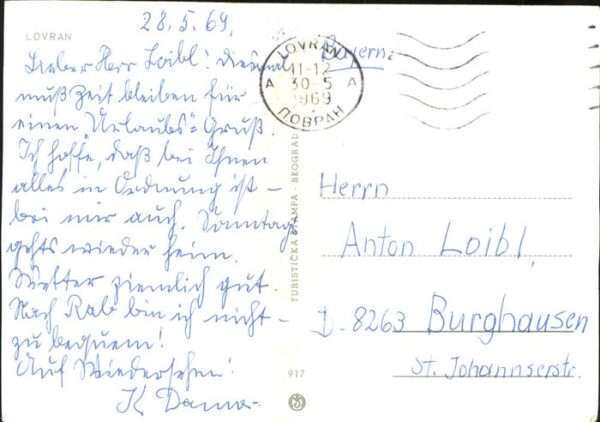 28.5.69.
LOVRAN
Lieber Herr Loibl! Diesmal
muß Zeit bleiben für
einen Urlaubs=Gruß.
Ich hoffe, daß bei Ihnen
alles in Ordnung ist –
bei mir auch. Sonntag
gehts wieder heim.
Wetter ziemlich gut.
Nach Rab bin ich nicht –
zu bequem!
Auf Wiedersehen!
K
LOVRAN
A 11-12 A
30-5
1969
ЛОВРАН
Bayern
TURISTIČKA ŠTAMPA - BEOGRAD
917
Herrn
Anton Loibl,
D-8263 Burghausen
St. Johannserstr.